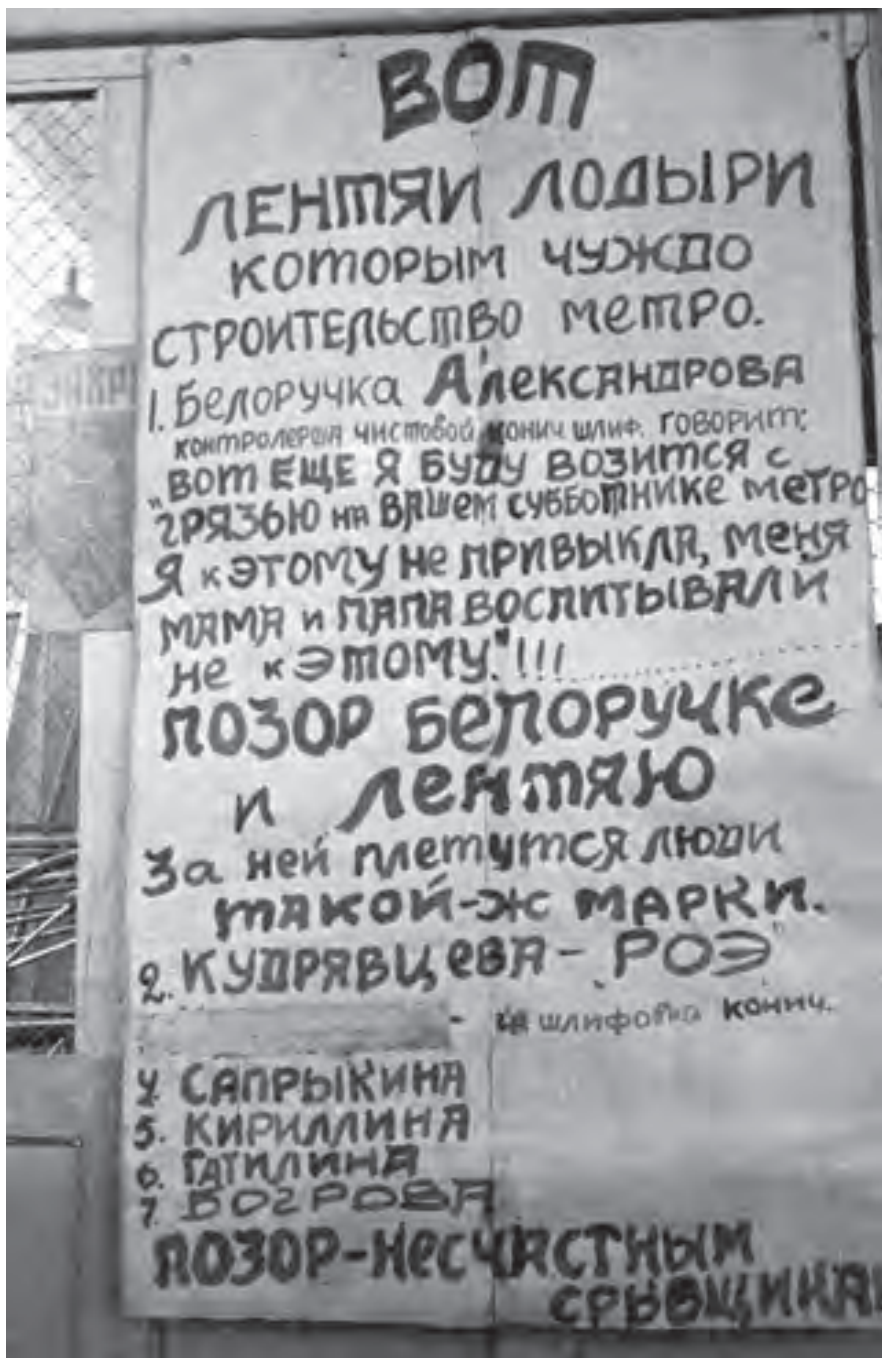 ВОТ
ЛЕНТЯИ ЛОДЫРИ
КОТОРЫМ ЧУЖДО
СТРОИТЕЛЬСТВО МЕТРО.
1. Белоручка АЛЕКСАНДРОВА
контролерша чистовой конич шлиф. говорит:
„ВОТ ЕЩЕ Я БУДУ ВОЗИТСЯ С
ГРЯЗЬЮ НА ВАШЕМ СУББОТНИКЕ МЕТРО
Я к ЭТОМУ НЕ ПРИВЫКЛА, МЕНЯ
МАМА и ПАПА ВОСПИТЫВАЛИ
НЕ к ЭТОМУ."!!!
ПОЗОР БЕЛОРУЧКЕ
и ЛЕНТЯЮ
За ней плетутся люди
ТАКОЙ-Ж МАРКИ.
2. КУДРЯВЦЕВА - РОЭ
- шлифовка конич.
4. САПРЫКИНА
5. КИРИЛЛИНА
6. ГАТИЛИНА
7. БОГРОВА
ПОЗОР-НЕСЧАСТНЫМ
СРЫВЩИКАМ
ЗАКР